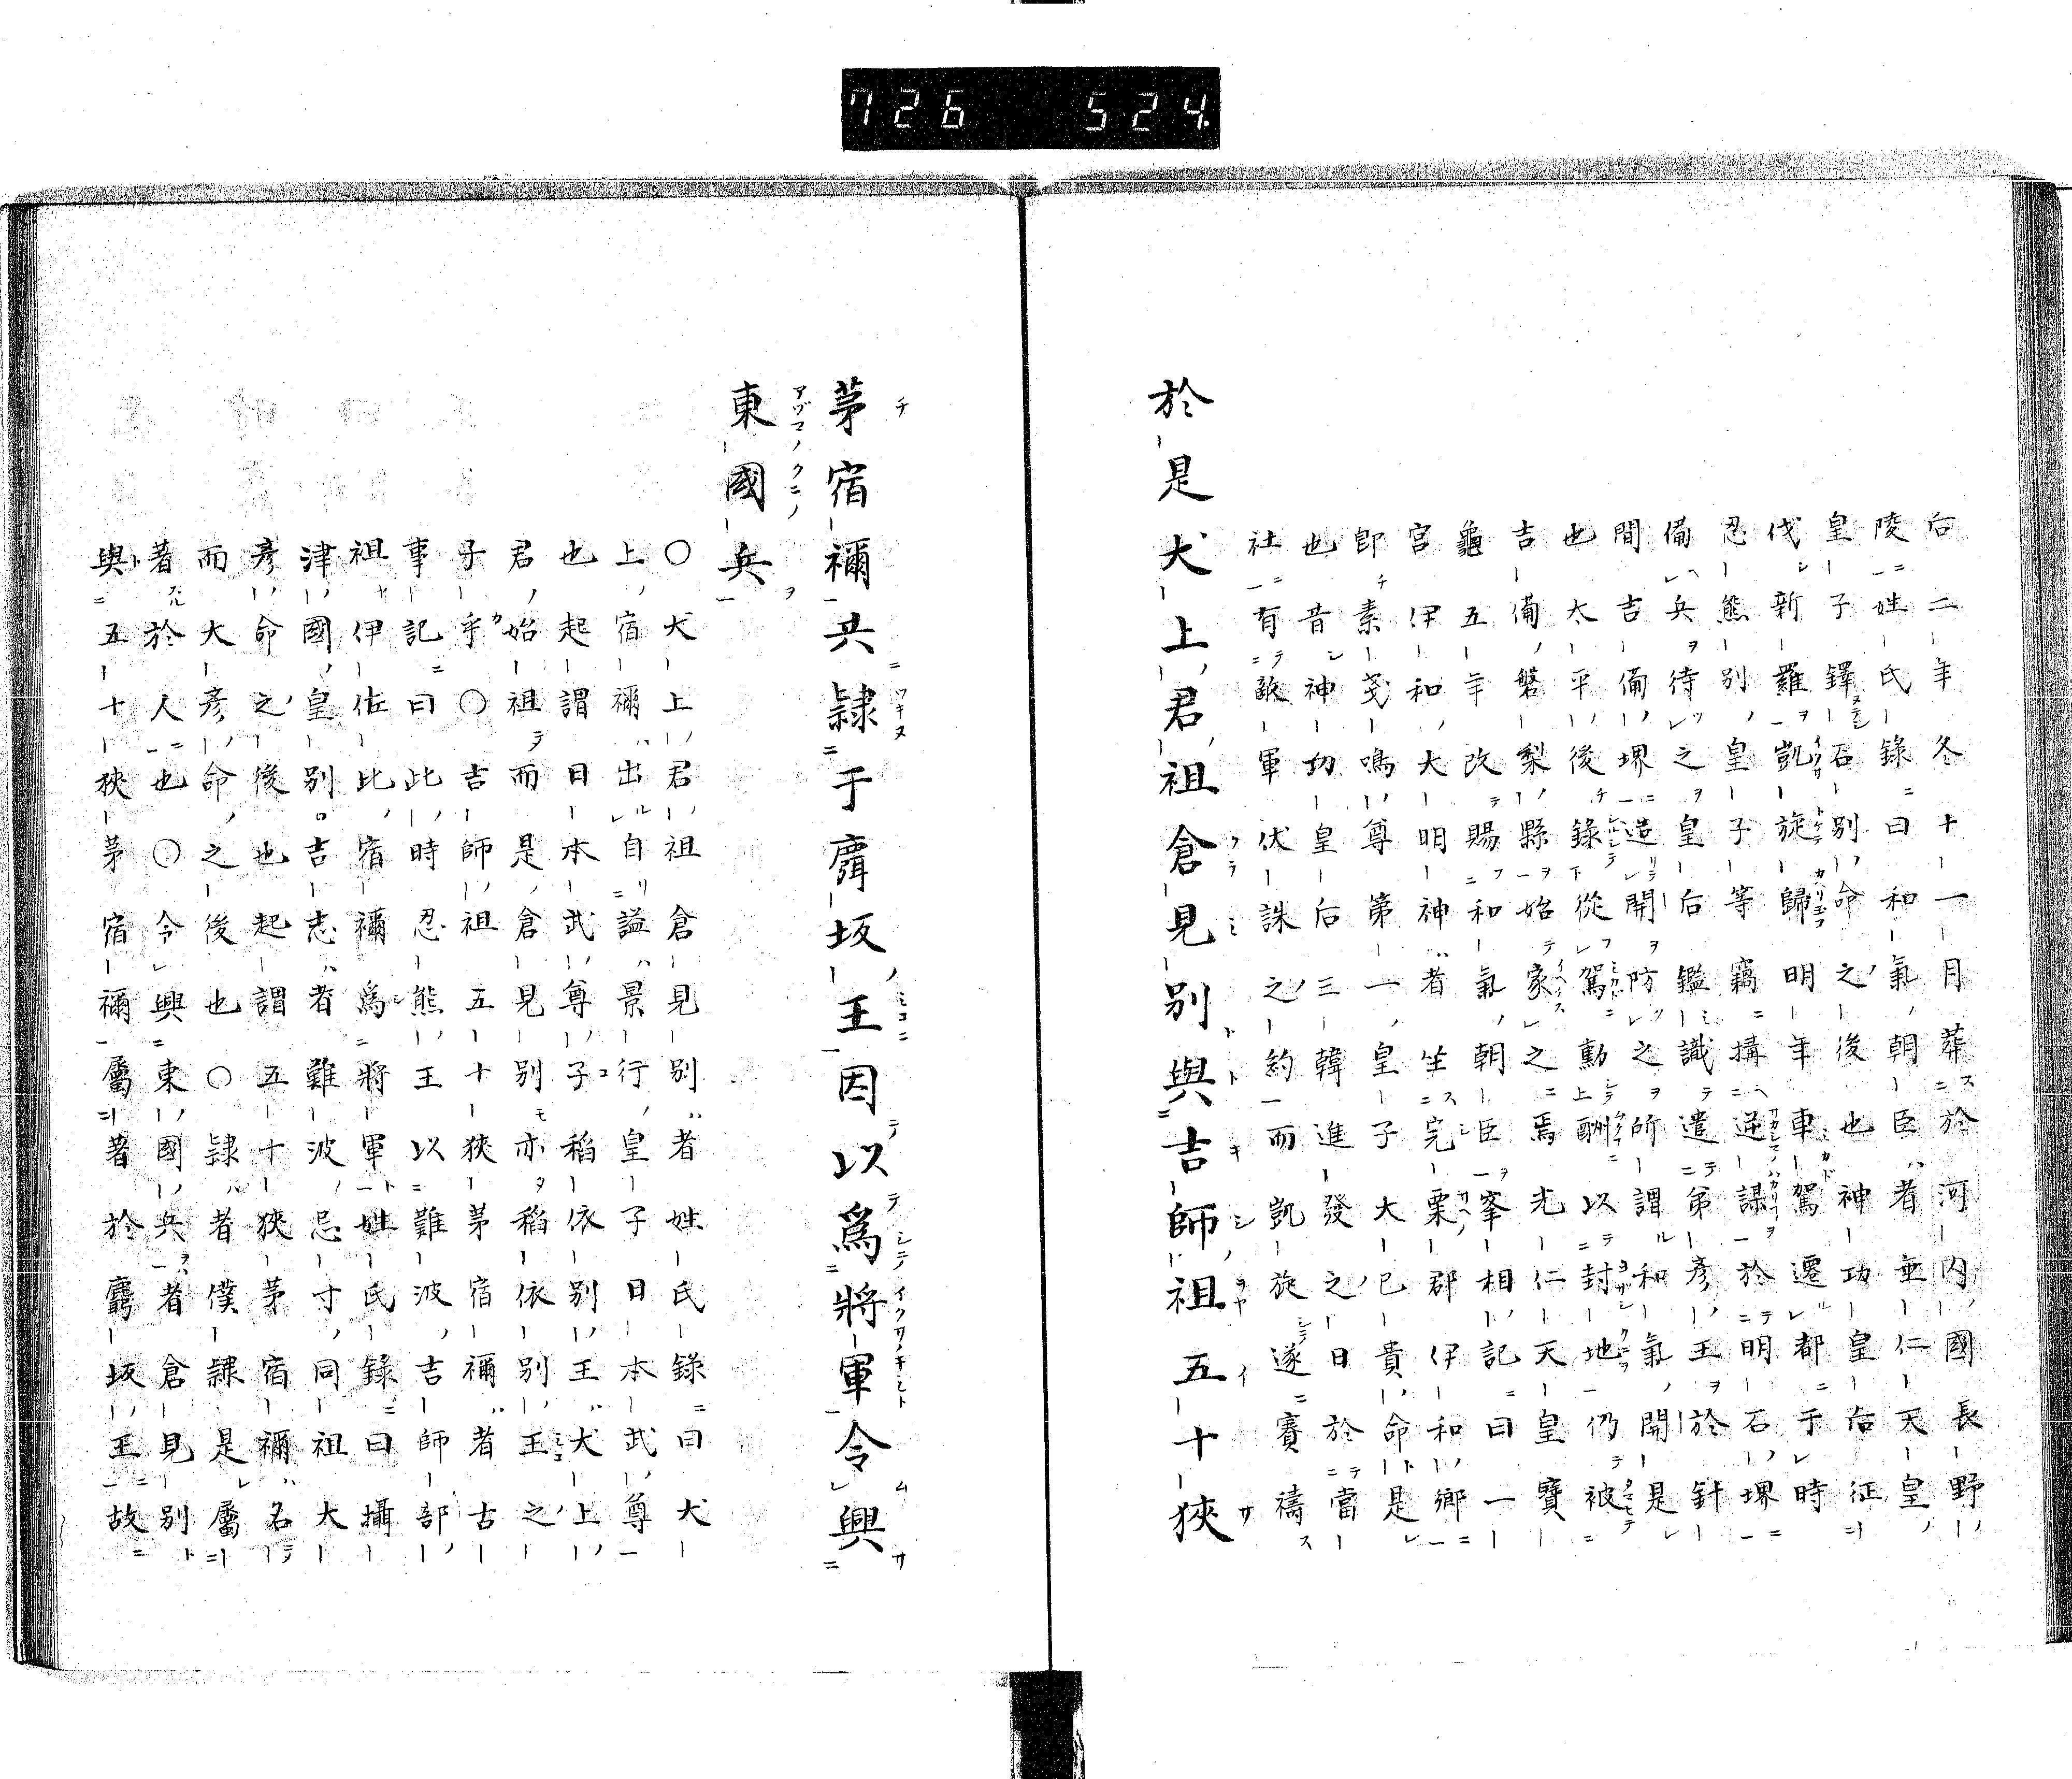 726 524
后二年冬十一月葬於河内國長野
陵姓氏錄曰和氣朝臣者垂仁天皇
皇子鐸石別命之後也神功皇后征
伐新羅凱旋歸明年車駕還都于時
忍熊別皇子等竊搆逆謀於明石堺
備兵待之皇后鑑識遣弟彦王於針
間吉備堺造開防之所謂和氣開是
也太平後錄從駕勳酬以封地仍被
吉備磐梨縣始家之焉光仁天皇寶
龜五年改賜和氣朝臣峯相記曰一
宮伊和大明神者坐完粟郡伊和鄉
即素戔鳴尊第一皇子大巳貴命是
也昔神功皇后三韓進發之日於當
社有敵軍伏誅之約而凱旋遂賽禱
於是犬上君祖倉見別與吉師祖五十狹
茅宿禰共隷于麛坂王因以爲將軍令興
東國兵
〇犬上君祖倉見別者姓氏錄曰犬
上宿禰出自謚景行皇子日本武尊
也起謂日本武尊子稻依別王犬上
君始祖而是倉見別亦稻依別王之
子乎〇吉師祖五十狹茅宿禰者古
事記曰此時忍熊王以難波吉師部
祖伊佐比宿禰爲將軍姓氏錄曰攝
津國皇別吉志者難波忌寸同祖大
彦命之後也起謂五十狹茅宿禰名
而大彦命之後也〇隷者僕隷是屬
著於人也〇令興東國兵者倉見別
與五十狹茅宿禰屬著於麛坂王故